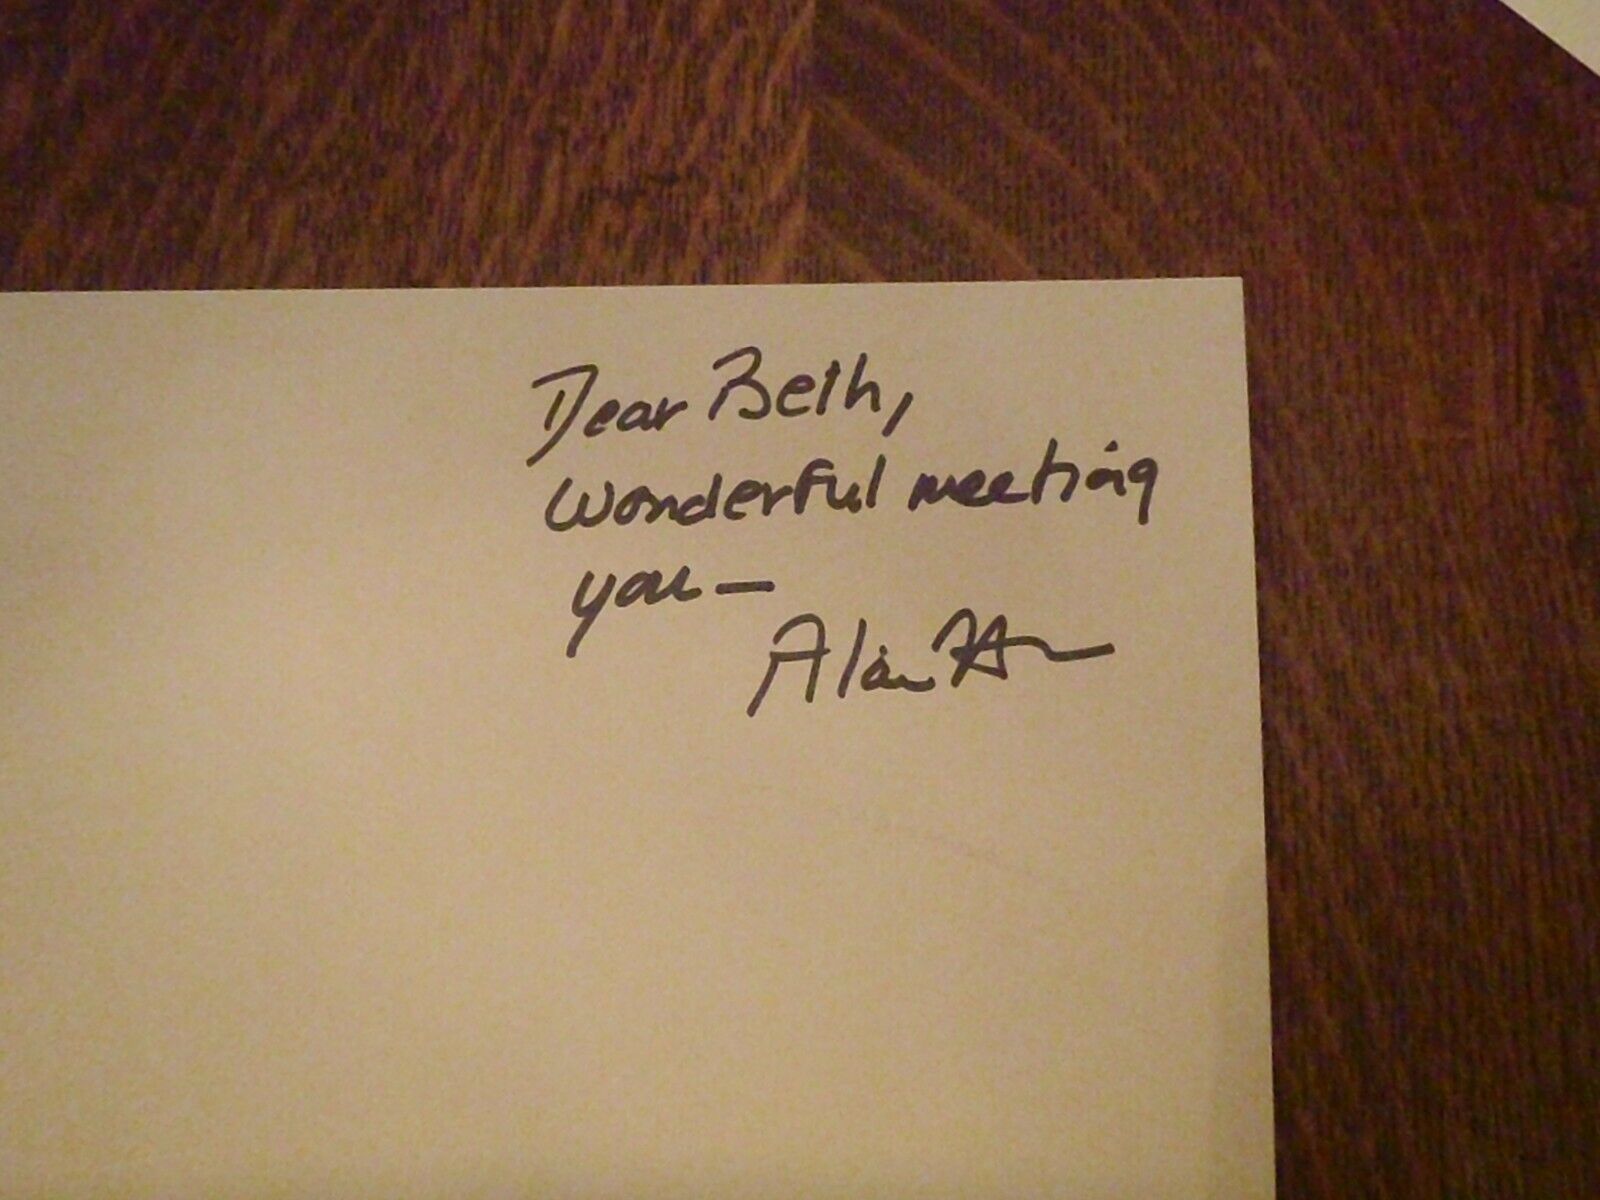 Dear Beth,
Wonderful meeting
you —
Alan